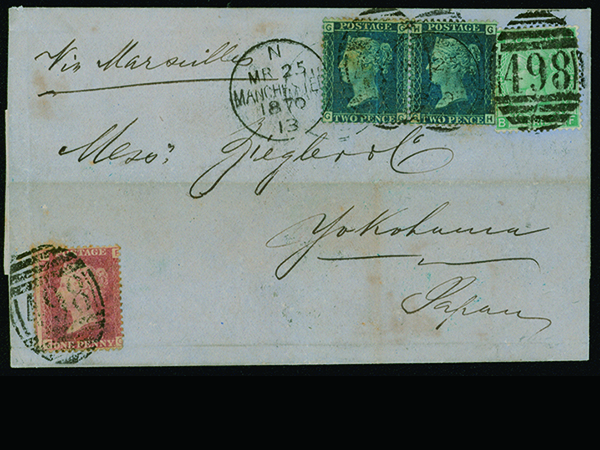 Via Marseilles
N
MR 25
MANCHESTER
1870
13
POSTAGE
G G
TWO PENCE
POSTAGE
H G
TWO PENCE
G H
498
Messrs Ziegler & Co
Yokohama
Japan
POSTAGE
E
498
ONE PENNY